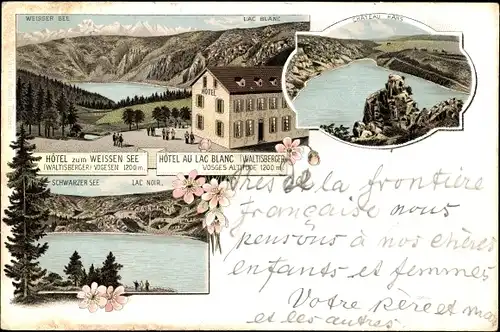 WEISSER SEE
LAC BLANC
CHÂTEAU HANS
HÔTEL
HÔTEL zum WEISSEN SEE
(WALTISBERGER) VOGESEN 1200 m.
HÔTEL AU LAC BLANC (WALTISBERGER)
VOSGES ALTITUDE 1200 m.
SCHWARZER SEE
LAC NOIR.
Près de la frontière
française nous
pensons à nos chères
enfants et femmes
Votre père et
et les autres